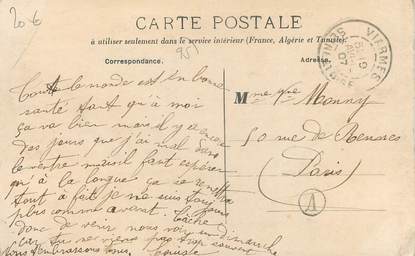 20 €
CARTE POSTALE
à utiliser seulement dans le service intérieur (France, Algérie et Tunisie).
Correspondance.
Adresse.
951
VIARMES
Tout le monde est en bonne
santé tant qu'à moi
ça va bien mais il y a encore
des jours que j'ai mal dans
le ventre mais il faut espérer
qu'à la longue ça se remettra
tout à fait je ne suis toujours
plus comme avant. tâche
donc de venir nous voir un dimanche
car tu ne viens pas trop souvent
Louise
Mme Vve Monny
50 rue de Rennes
(Paris)
A